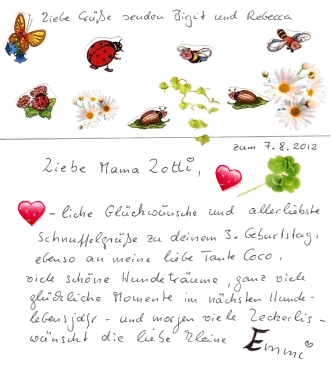 Liebe Grüße senden Birgit und Rebecca
zum 7.8.2012
Liebe Mama Lotti,
-liche Glückwünsche und allerliebste
Schnuffelgrüße zu deinem 3. Geburtstag,
ebenso an meine liebe Tante Coco,
viele schöne Hundeträume, ganz viele
glückliche Momente im nächsten Hunde-
lebensjahr - und morgen viele Leckerlis -
wünscht die liebe kleine Emmi